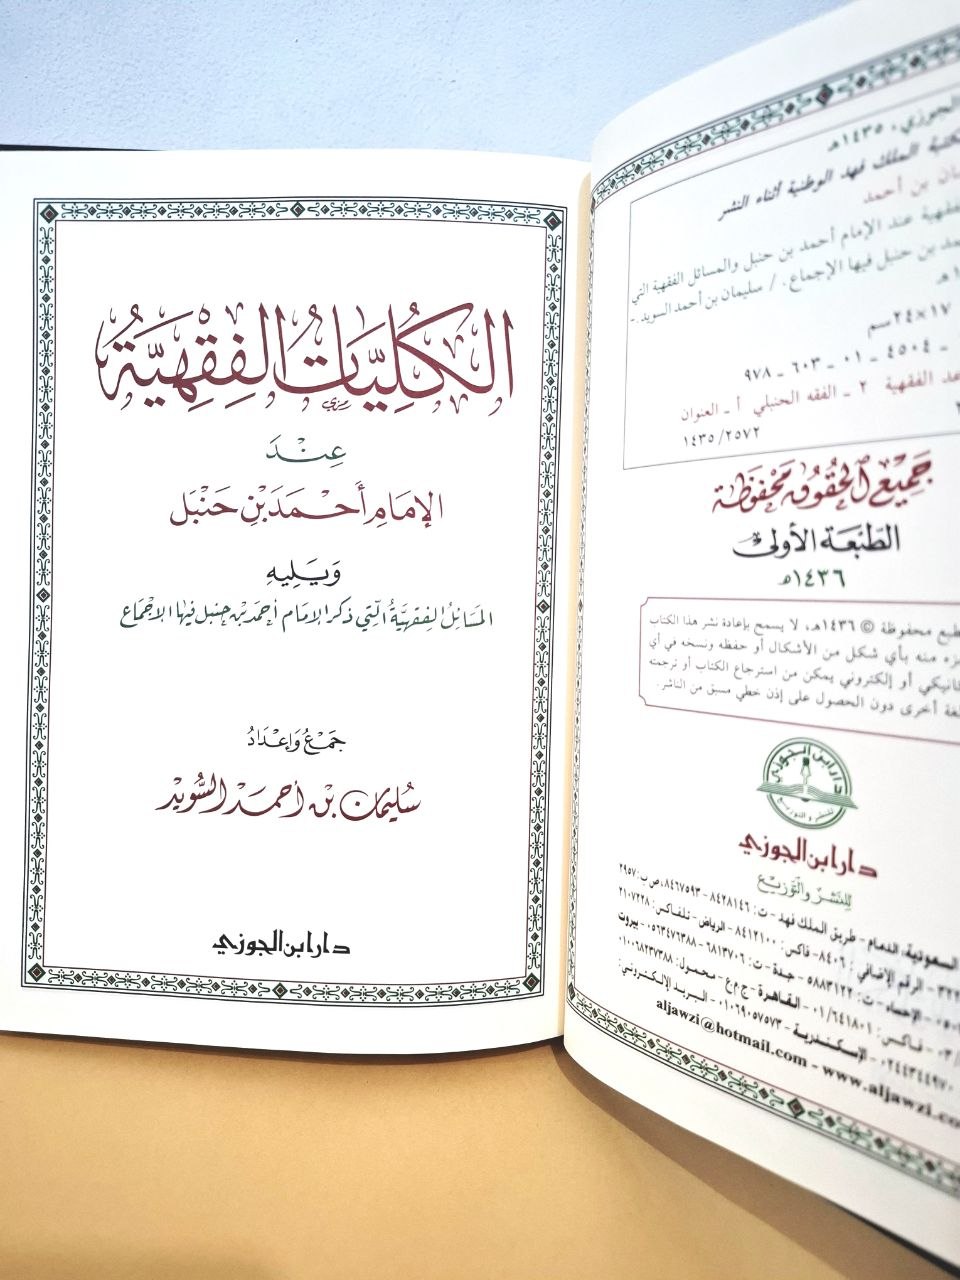 الكُلِّيَّاتُ الفِقْهِيَّةُ
عِنْدَ
الإمَامِ أَحْمَدَ بْنِ حَنْبَل
وَيَلِيهِ
المَسَائِلُ الفِقهِيَّةُ الَّتِي ذكر الإمَام أحمد بن حنبل فيها الإجماع
جَمْعُ وَإِعْدَادُ
سُليمَان بن أحمد السُّوَيد
دار ابن الجوزي
الجوزي، ١٤٣٥هـ
مكتبة الملك فهد الوطنية أثناء النشر
بن أحمد
الفقهية عند الإمام أحمد بن حنبل والمسائل الفقهية التي
بن حنبل فيها الإجماع. / سليمان بن أحمد السويد.-
هـ
١٧×٢٤سم
٩٧٨ - ٦٠٣ - ٠١ - ٤٥٠٤ -
الفقهية ٢ - الفقه الحنبلي أ - العنوان
١٤٣٥/٢٥٧٢
جَمِيعُ الحُقُوقِ مَحْفُوظَة
الطَّبْعَة الأولى
١٤٣٦هـ
محفوظة © ١٤٣٦هـ، لا يسمح بإعادة نشر هذا الكتاب
منه بأي شكل من الأشكال أو حفظه ونسخه في أي
أو إلكتروني يمكن من استرجاع الكتاب أو ترجمته
أخرى دون الحصول على إذن خطي مسبق من الناشر.
دار ابن الجوزي
للنشر والتوزيع
دار ابن الجوزي
لِلنَّشْر والتَّوزيع
السعودية: الدمام - طريق الملك فهد - ت: ٨٤٢٨١٤٦ - ٨٤٦٧٥٩٣، ص ب: ٢٩٥٧
الرقم الإضافي: ٨٤٠٦ - فاكس: ٨٤١٢١٠٠ - الرياض - تلفاكس: ٢١٠٧٢٢٨
الإحساء - ت: ٥٨٨٣١٢٢ - جدة - ت: ٦٨١٣٧٠٦ - ٠٥٦٣٤٧٦٣٨٨ - بيروت
فاكس: ٠١/٦٤١٨٠١ - القاهرة - ج م ع - محمول: ٠١٠٠٦٨٢٣٧٣٨٨
٠٢٤٤٣٤٤٩٧٠ - الإسكندرية - ٠١٠٦٩٠٥٧٥٧٣ - البريد الإلكتروني:
aljawzi@hotmail.com - www.aljawzi.